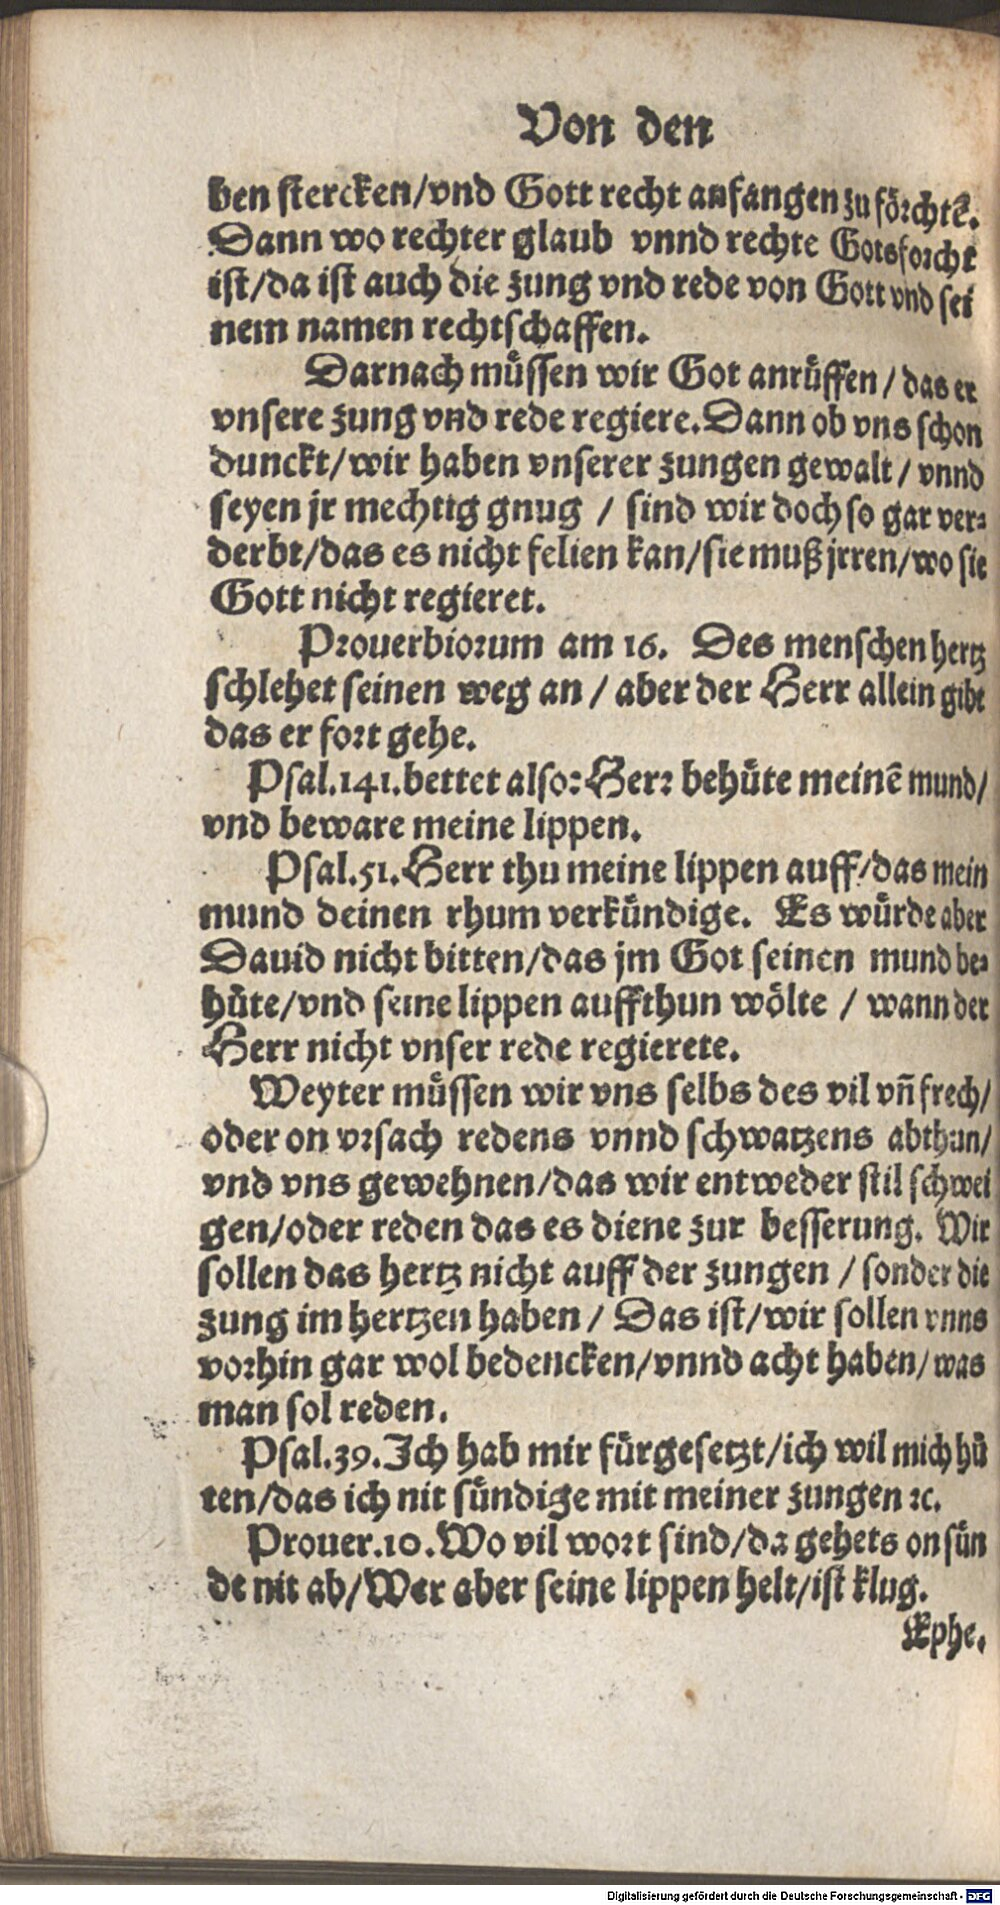 Von den
ben stercken/vnd Gott recht anfangen zu förchtē.
Dann wo rechter glaub vnnd rechte Gotsforcht
ist/da ist auch die zung vnd rede von Gott vnd sei
nem namen rechtschaffen.
Darnach müssen wir Got anrüffen / das er
vnsere zung vnd rede regiere. Dann ob vns schon
dunckt/wir haben vnserer zungen gewalt / vnnd
seyen jr mechtig gnug / sind wir doch so gar ver-
derbt/das es nicht felien kan/sie muß jrren/wo sie
Gott nicht regieret.
Prouerbiorum am 16. Des menschen hertz
schlehet seinen weg an / aber der Herr allein gibt
das er fort gehe.
Psal.141.bettet also: Herr behüte meinē mund/
vnd beware meine lippen.
Psal.51. Herr thu meine lippen auff/das mein
mund deinen rhum verkündige. Es würde aber
Dauid nicht bitten/das jm Got seinen mund be-
hüte/vnd seine lippen auffthun wölte / wann der
Herr nicht vnser rede regierete.
Weyter müssen wir vns selbs des vil vñ frech/
oder on vrsach redens vnnd schwatzens abthun/
vnd vns gewehnen/das wir entweder stil schwei
gen/oder reden das es diene zur besserung. Wir
sollen das hertz nicht auff der zungen / sonder die
zung im hertzen haben / Das ist/wir sollen vnns
vorhin gar wol bedencken/vnnd acht haben/was
man sol reden.
Psal.39. Ich hab mir fürgesetzt/ich wil mich hü
ten/das ich nit sündige mit meiner zungen ꝛc.
Prouer.10. Wo vil wort sind/da gehets on sün
de nit ab/Wer aber seine lippen helt/ist klug.
Ephe.
Digitalisierung gefördert durch die Deutsche Forschungsgemeinschaft - DFG